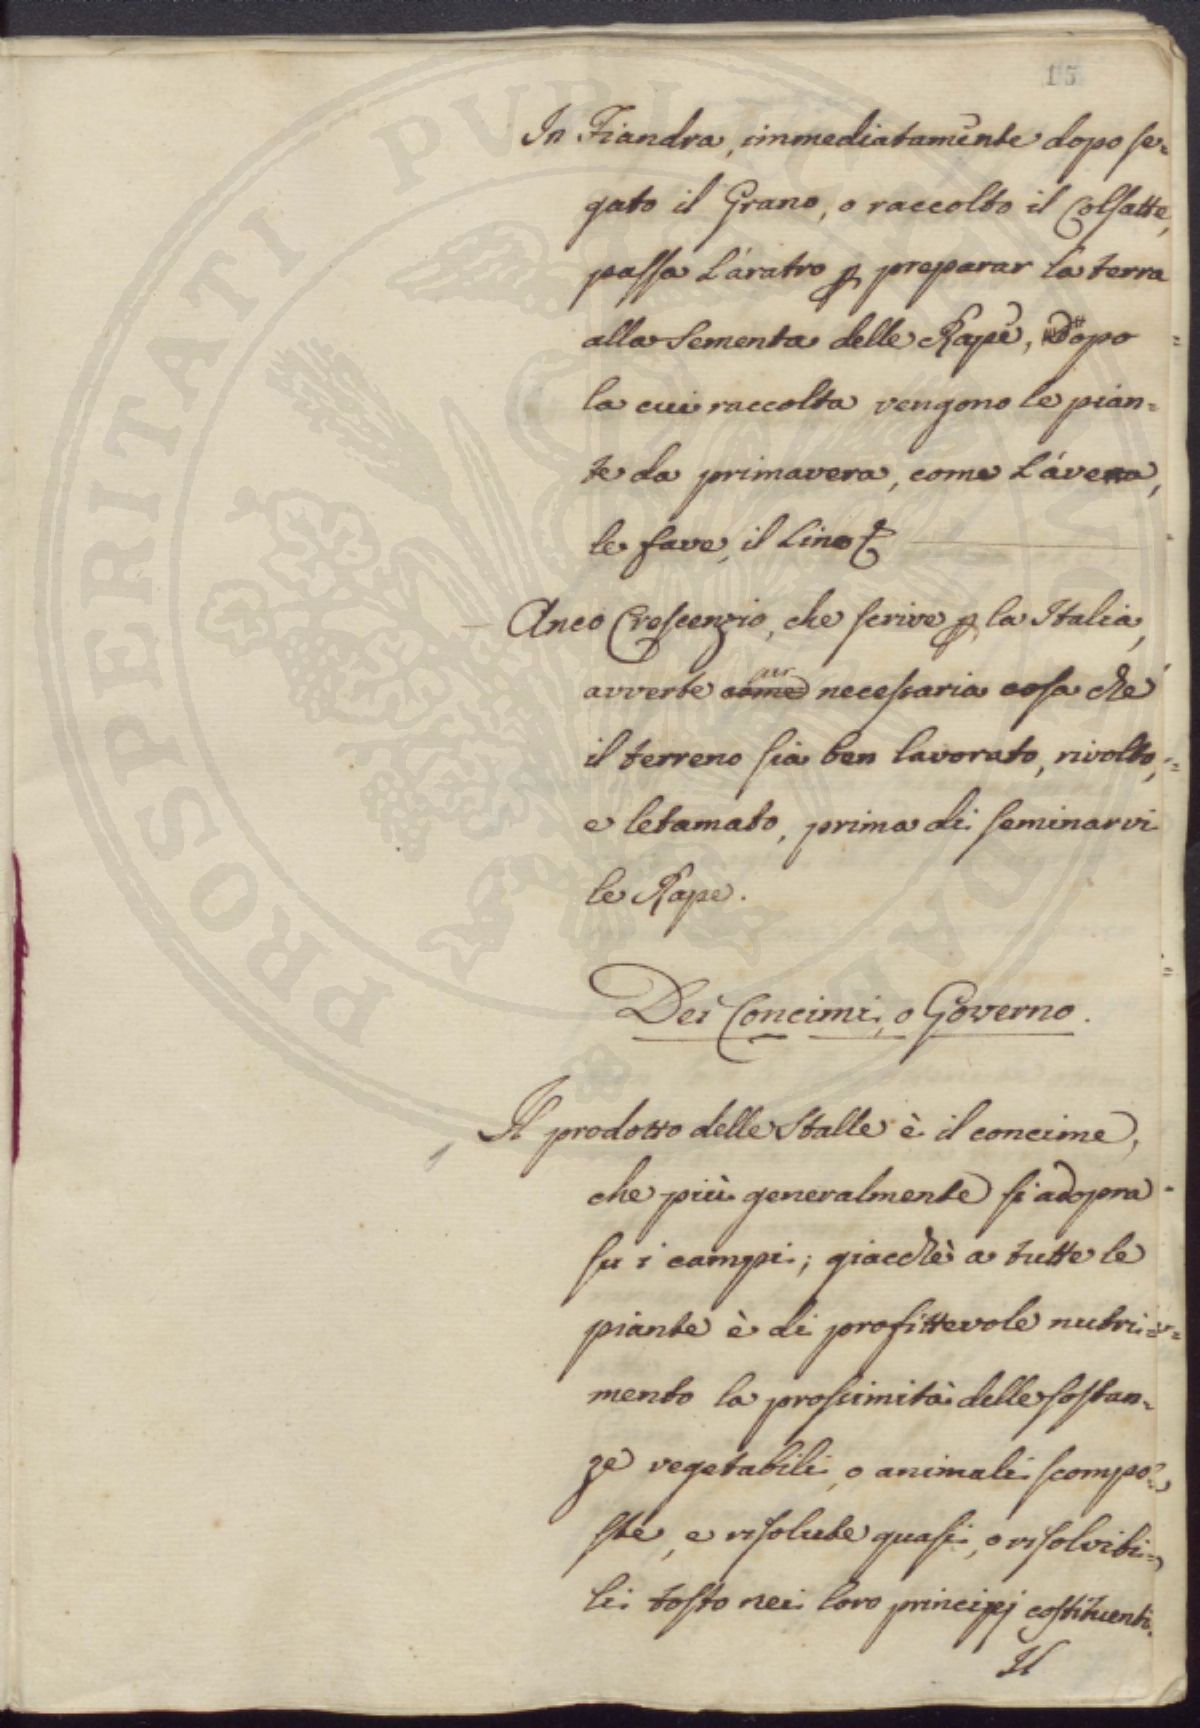 15
In Fiandra, immediatamente dopo se=
gato il Grano, o raccolto il Colsatte,
passa l'aratro p preparar la terra
alla sementa delle Rape, dopo
la cui raccolta vengono le pian=
te da primavera, come l'avena,
le fave, il Lino &
Anco Crescenzio, che scrive p la Italia,
avverte come per necessaria cosa che
il terreno sia ben lavorato, rivolto,
e letamato, prima di seminarvi
le Rape.
Dei Concimi, o Governo.
Il prodotto delle Stalle è il concime,
che più generalmente si adopra
su i campi; giacchè a tutte le
piante è di profittevole nutri=
mento la prossimità delle sostan=
ze vegetabili, o animali scompo=
ste, e risolute quasi, o risolvibi=
li tosto nei loro principj costituenti.
Il
PROSPERITATI PUBLICAE